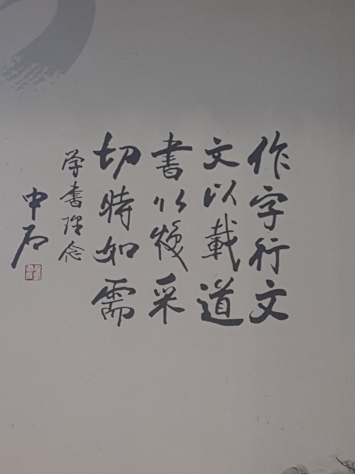 作字行文
文以載道
書以焕采
切時如需
学書理念
中石